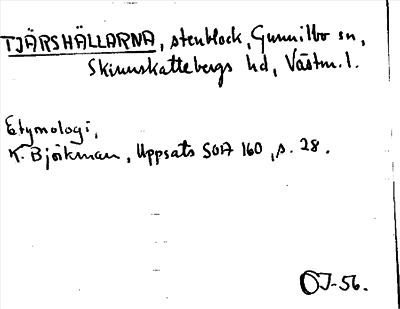 TJÄRSHÄLLARNA, stenblock, Gunnilbo sn,
Skinnskattebergs hd, Västm. l.
Etymologi,
K. Björkman, Uppsats SOÄ 160, s. 28.
OJ-56.